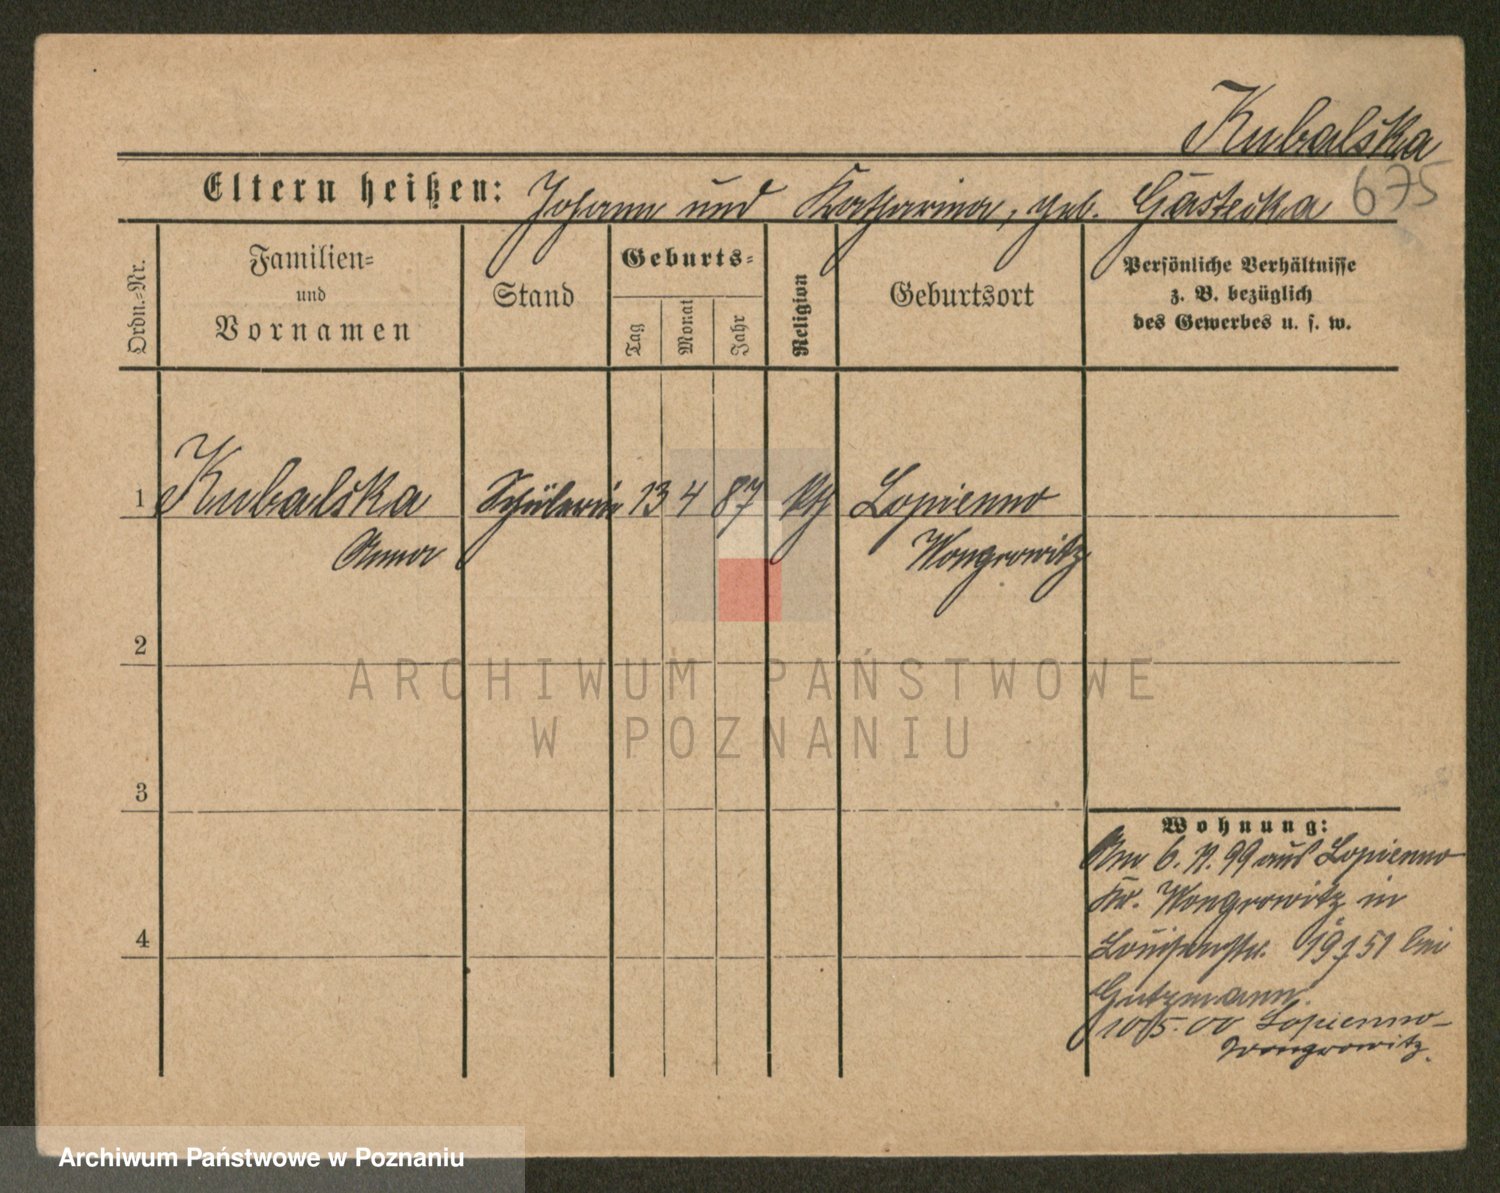 Kubalska
Eltern heißen: Johann und Katharina, geb. Gąstecka 675
Ordn.-Nr.
Familien-
und
Vornamen
Stand
Geburts-
Tag
Monat
Jahr
Religion
Geburtsort
Persönliche Verhältnisse
z. B. bezüglich
des Gewerbes u. s. w.
1 Kubalska Schülerin 13 4 87 kth Lopienno
Anna Wongrowitz
2
ARCHIWUM PAŃSTWOWE
W POZNANIU
3
Wohnung:
Am 6. 11. 99 aus Lopienno
Kr. Wongrowitz in
4
Louisenstr. 19 bei
Gutzmann.
10/5. 00 Lopienno-
Wongrowitz.
Archiwum Państwowe w Poznaniu